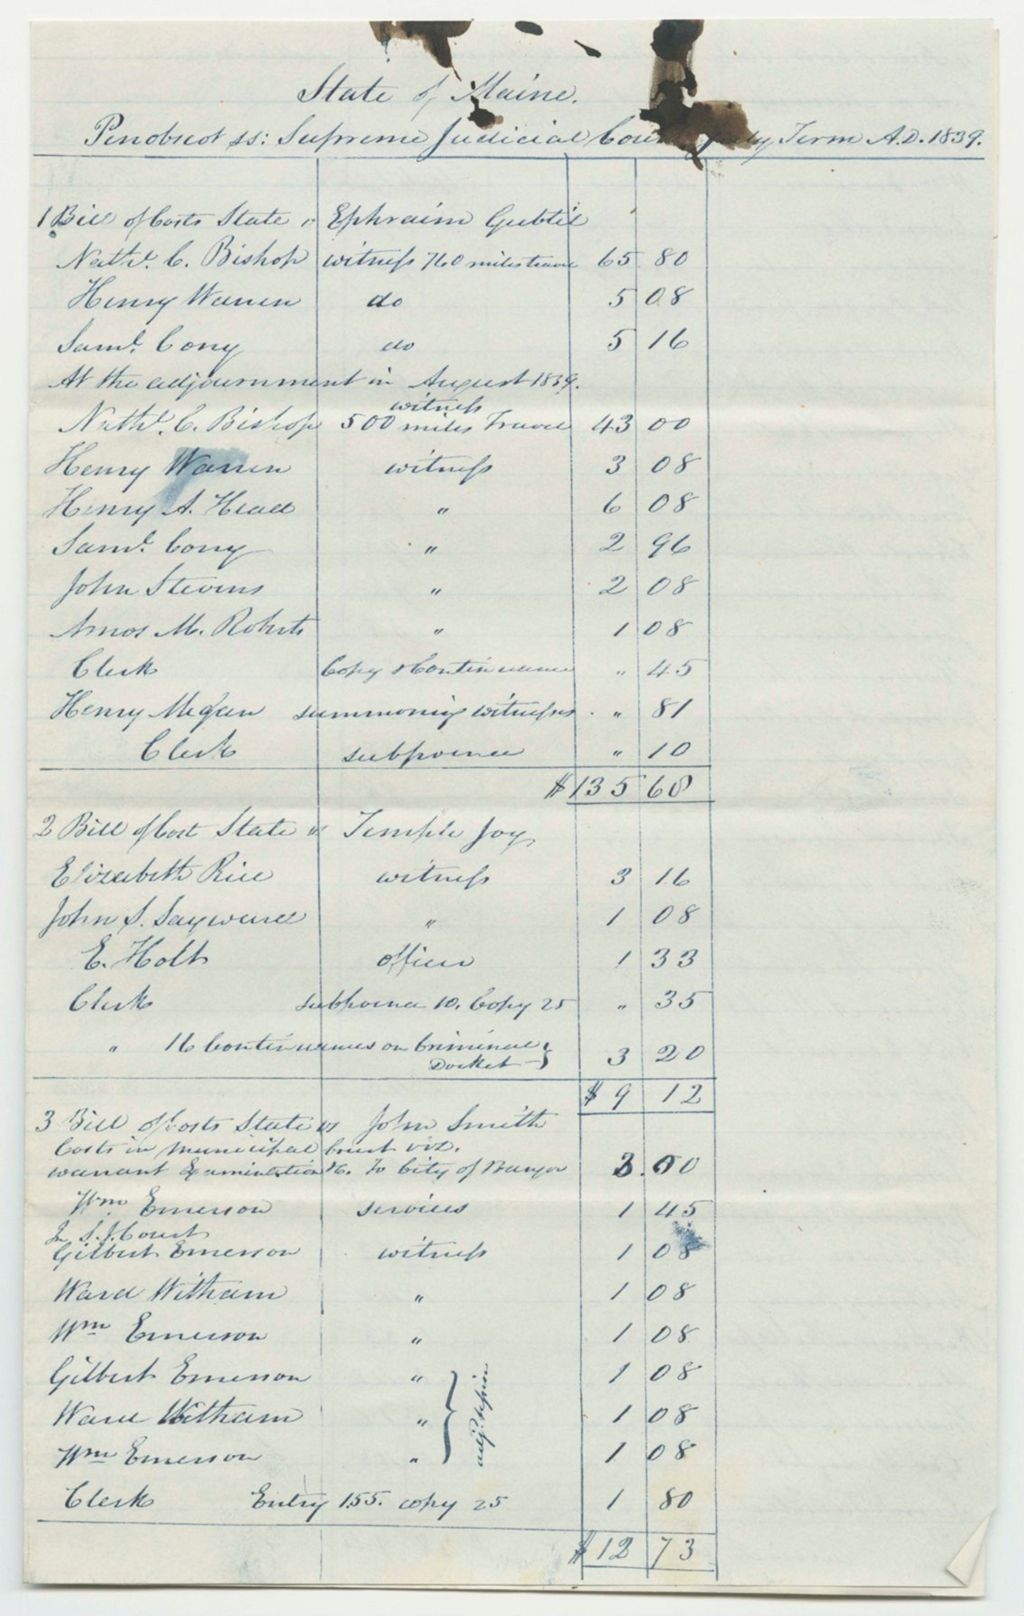 State of Maine.
Penobscot ss: Supreme Judicial Court July Term A.D. 1839.
1 Bill of Costs State vs Ephraim Gubtil
Nathl. C. Bishop witness 760 miles travel 65 80
Henry Warren do 5 08
Saml. Cony do 5 16
At the adjournment in August 1839.
witness
Nathl. C. Bishop 500 miles Travel 43 00
Henry Warren witness 3 08
Henry A. Head " 6 08
Saml. Cony " 2 96
John Stevens " 2 08
Amos M. Roberts " 1 08
Clerk Copy & Continuance " 45
Henry summoning witnesses " 81
Clerk subpoena " 10
$135 68
2 Bill of Cost State vs Temple Joy
Elizabeth Rice witness 3 16
John S. Sayward " 1 08
E. Holt officer 1 33
Clerk subpoena 10. Copy 25 " 35
" 16 Continuances on Criminal } 3 20
Docket
$9 12
3 Bill of Costs State vs John Smith
Costs in municipal Court viz.
warrant Examination &c. To City of Bangor 3.00
Wm Emerson services 1 45
In S.J. Court
Gilbert Emerson witness 1 08
Ward Witham " 1 08
Wm Emerson " 1 08
Gilbert Emerson " 1 08
Ward Witham " } adj. session 1 08
Wm Emerson " 1 08
Clerk Entry 155. copy 25 1 80
$12 73